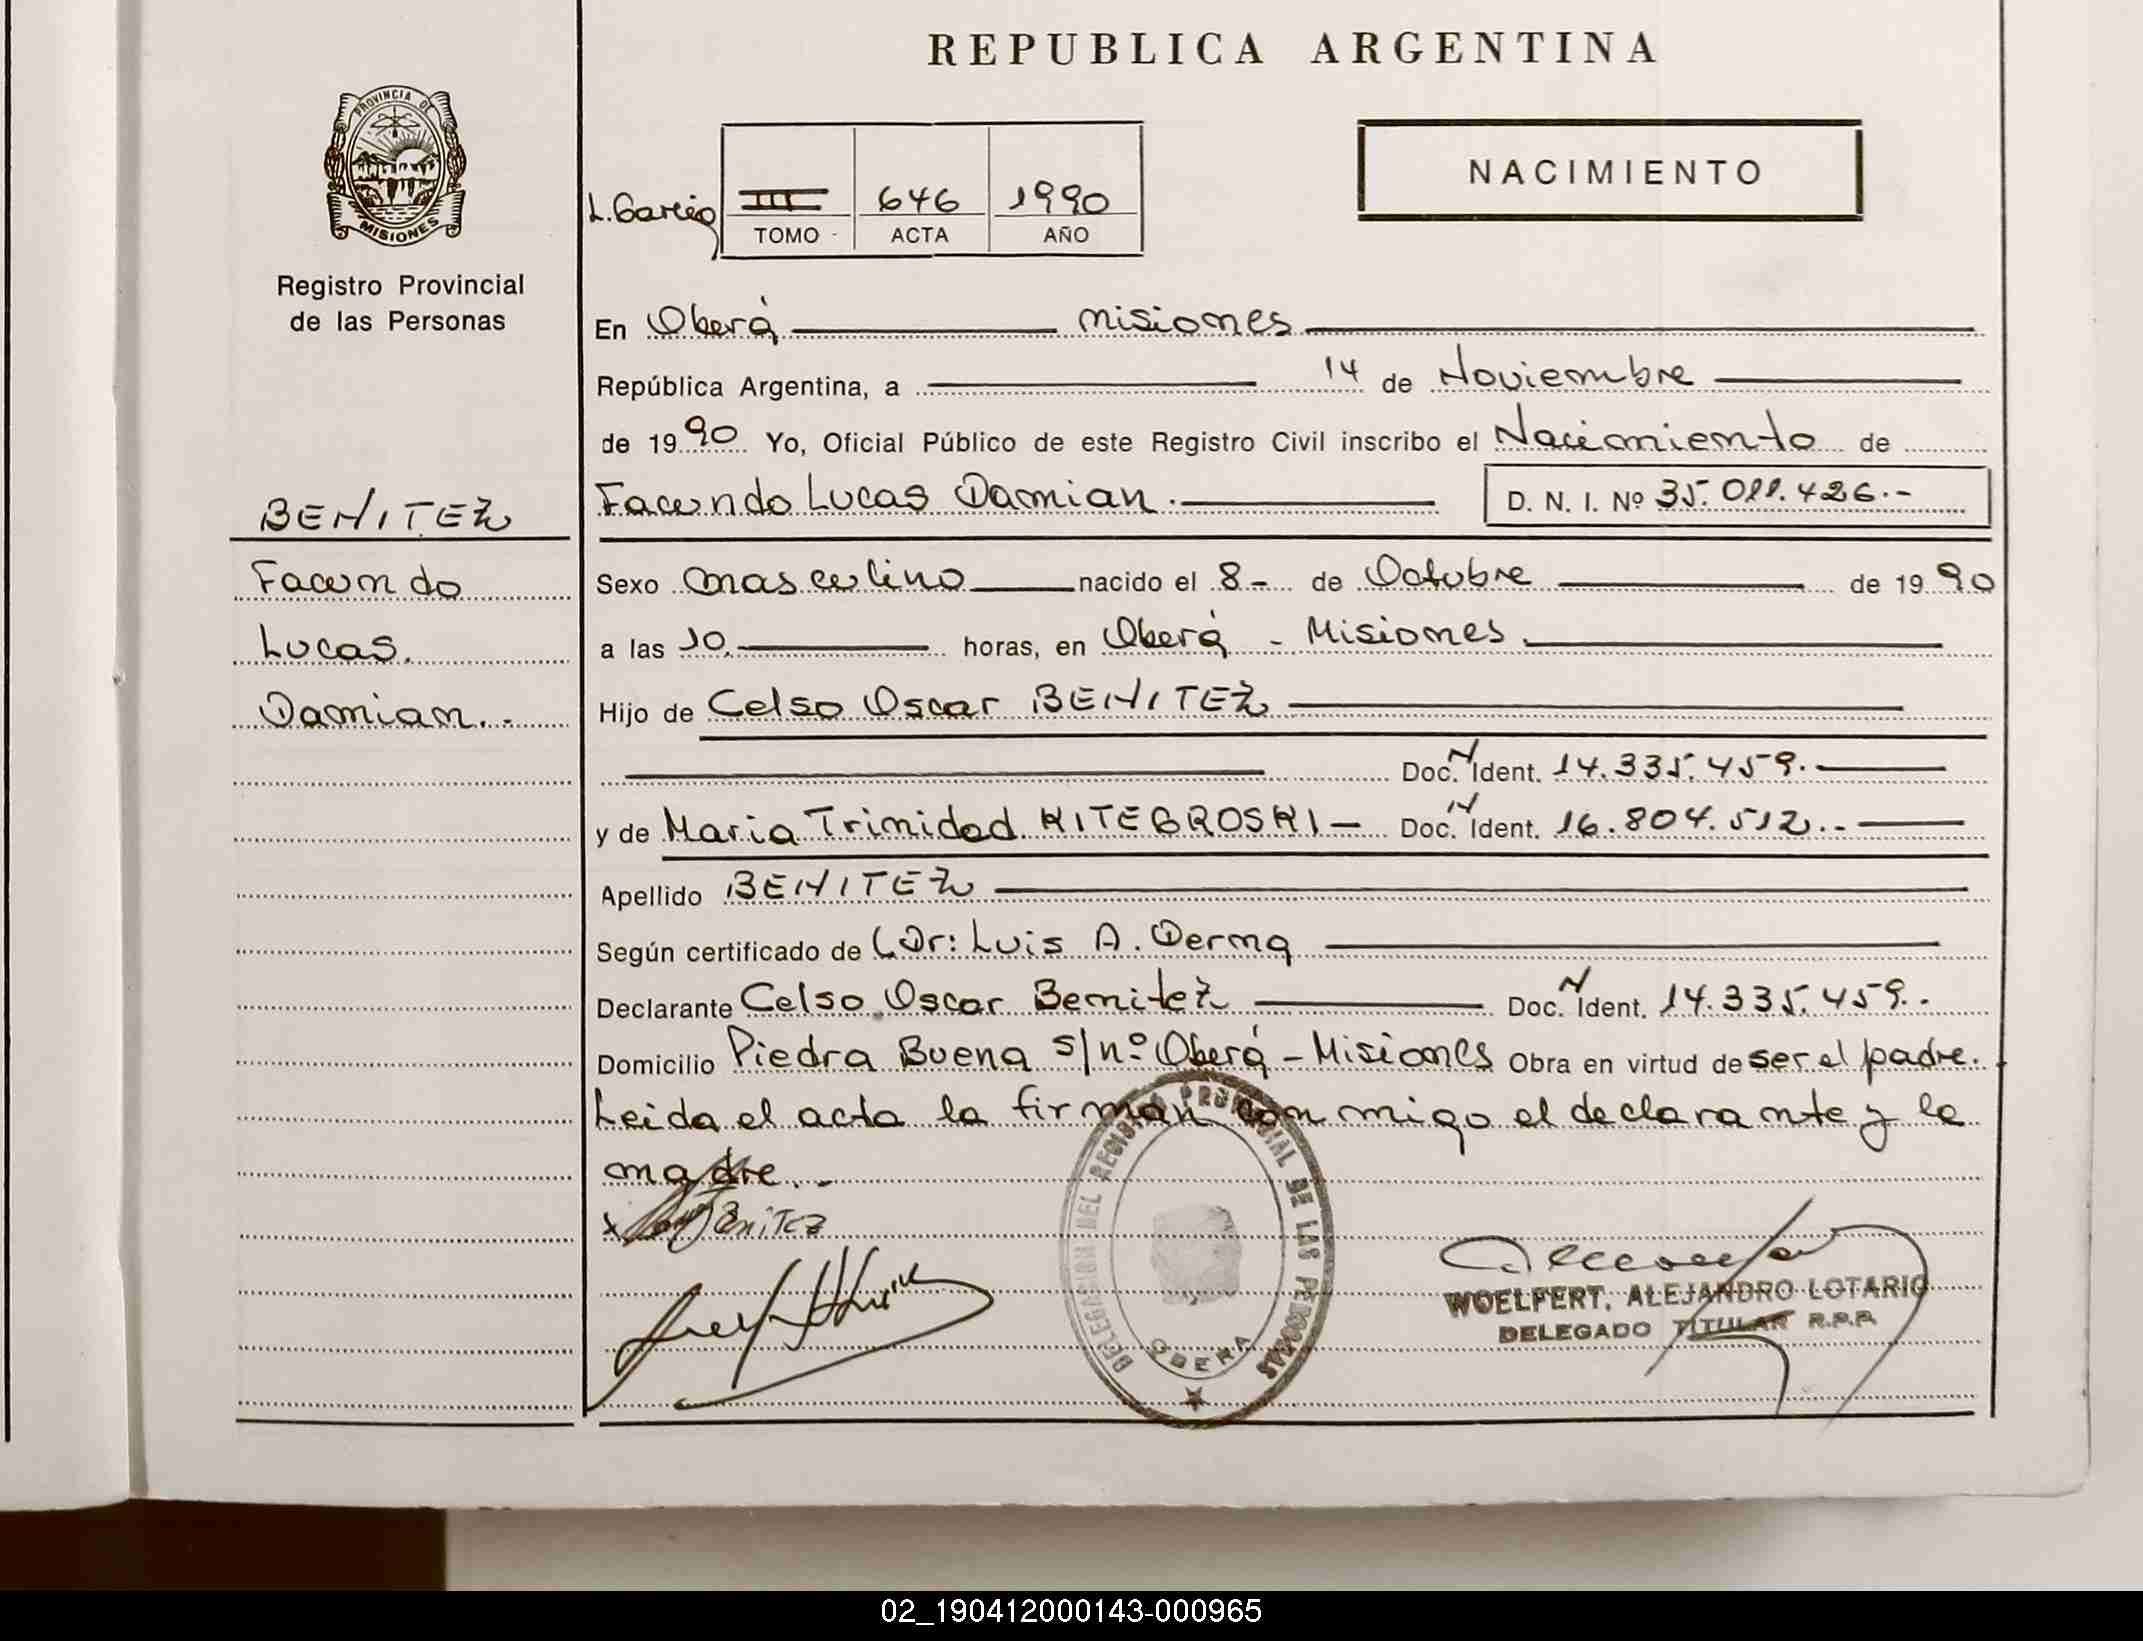 REPUBLICA ARGENTINA
PROVINCIA DE
MISIONES
Registro Provincial
de las Personas
NACIMIENTO
L. Garcia
III 646 1990
TOMO ACTA AÑO
En Oberá misiones
República Argentina, a 14 de Noviembre
de 1990 Yo, Oficial Público de este Registro Civil inscribo el Nacimiento de
Facundo Lucas Damian.
D. N. I. Nº 35.011.426.-
BENITEZ
Facundo
Lucas.
Damian.-
Sexo masculino nacido el 8- de Octubre de 1990
a las 10. horas, en Oberá - Misiones.
Hijo de Celso Oscar BENITEZ
Doc. N Ident. 14.335.459.
y de Maria Trinidad KITEGROSKI - Doc. N Ident. 16.804.512.-
Apellido BENITEZ
Según certificado de Dr: Luis A. Derma
Declarante Celso Oscar Benitez Doc. N Ident. 14.335.459.
Domicilio Piedra Buena s/nº Oberá - Misiones Obra en virtud de ser el padre.
Leida el acta la firman conmigo el declarante y la
madre.-
x Benitez
DELEGACION DEL REGISTRO PROVINCIAL DE LAS PERSONAS
OBERA
WOELFERT, ALEJANDRO LOTARIO
DELEGADO TITULAR R.P.P.
02_190412000143-000965